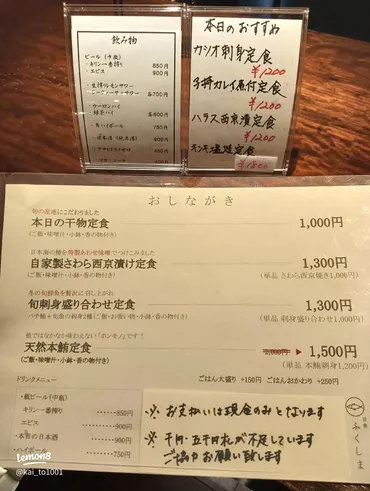 飲み物
ビール(中瓶)
・キリン一番搾り 850円
・エビス 900円
生搾りレモンサワー
各700円
ウーロンハイ
緑茶ハイ 各600円
角ハイボール 750円
本日のおすすめ
カツオ刺身定食
¥1200
子持カレイ煮付定食
¥1200
ハラス西京漬定食
¥1200
キンキ塩焼定食
¥1800
おしながき
旬の産地にこだわりました
本日の干物定食 1,000円
(ご飯・味噌汁・小鉢・香の物付き)
日本海の鰆を特製あわせ味噌でつけこみました
自家製さわら西京漬け定食 1,300円
(ご飯・味噌汁・小鉢・香の物付き) (単品 さわら西京焼き1,000円)
冬の旬鮮魚を贅沢に召し上がれ
旬刺身盛り合わせ定食 1,300円
バチ鮪+旬魚の刺身2種(ご飯・お吸い物・小鉢・香の物付き) (単品 刺身盛り合わせ1,000円)
他ではなかなか味わえない「ホンモノ」です!
天然本鮪定食 2,000円 ▶ 1,500円
(ご飯・味噌汁・小鉢・香の物付き) (単品 本鮪刺身1,200円)
ごはん大盛り +150円 ごはんおかわり +250円
ドリンクメニュー
・瓶ビール(中瓶)
キリン一番搾り ……850円
エビス ……900円
・本日の日本酒 ……900円
・ハイボール ……750円
※お支払いは現金のみとなります
※千円・五千円札が不足しています
ご協力お願い致します
ふくしま
lemon8
@kai_to1001